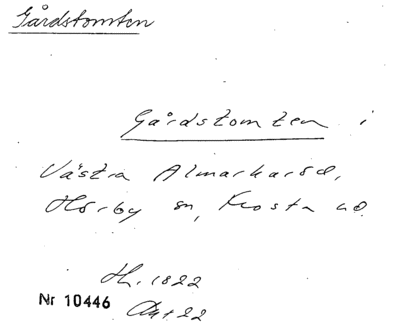 Gårdstomten
Gårdstomten i
Västra Almarkaröd,
Hörby sn, Frosta hd.
H. 1822
Nr 10446